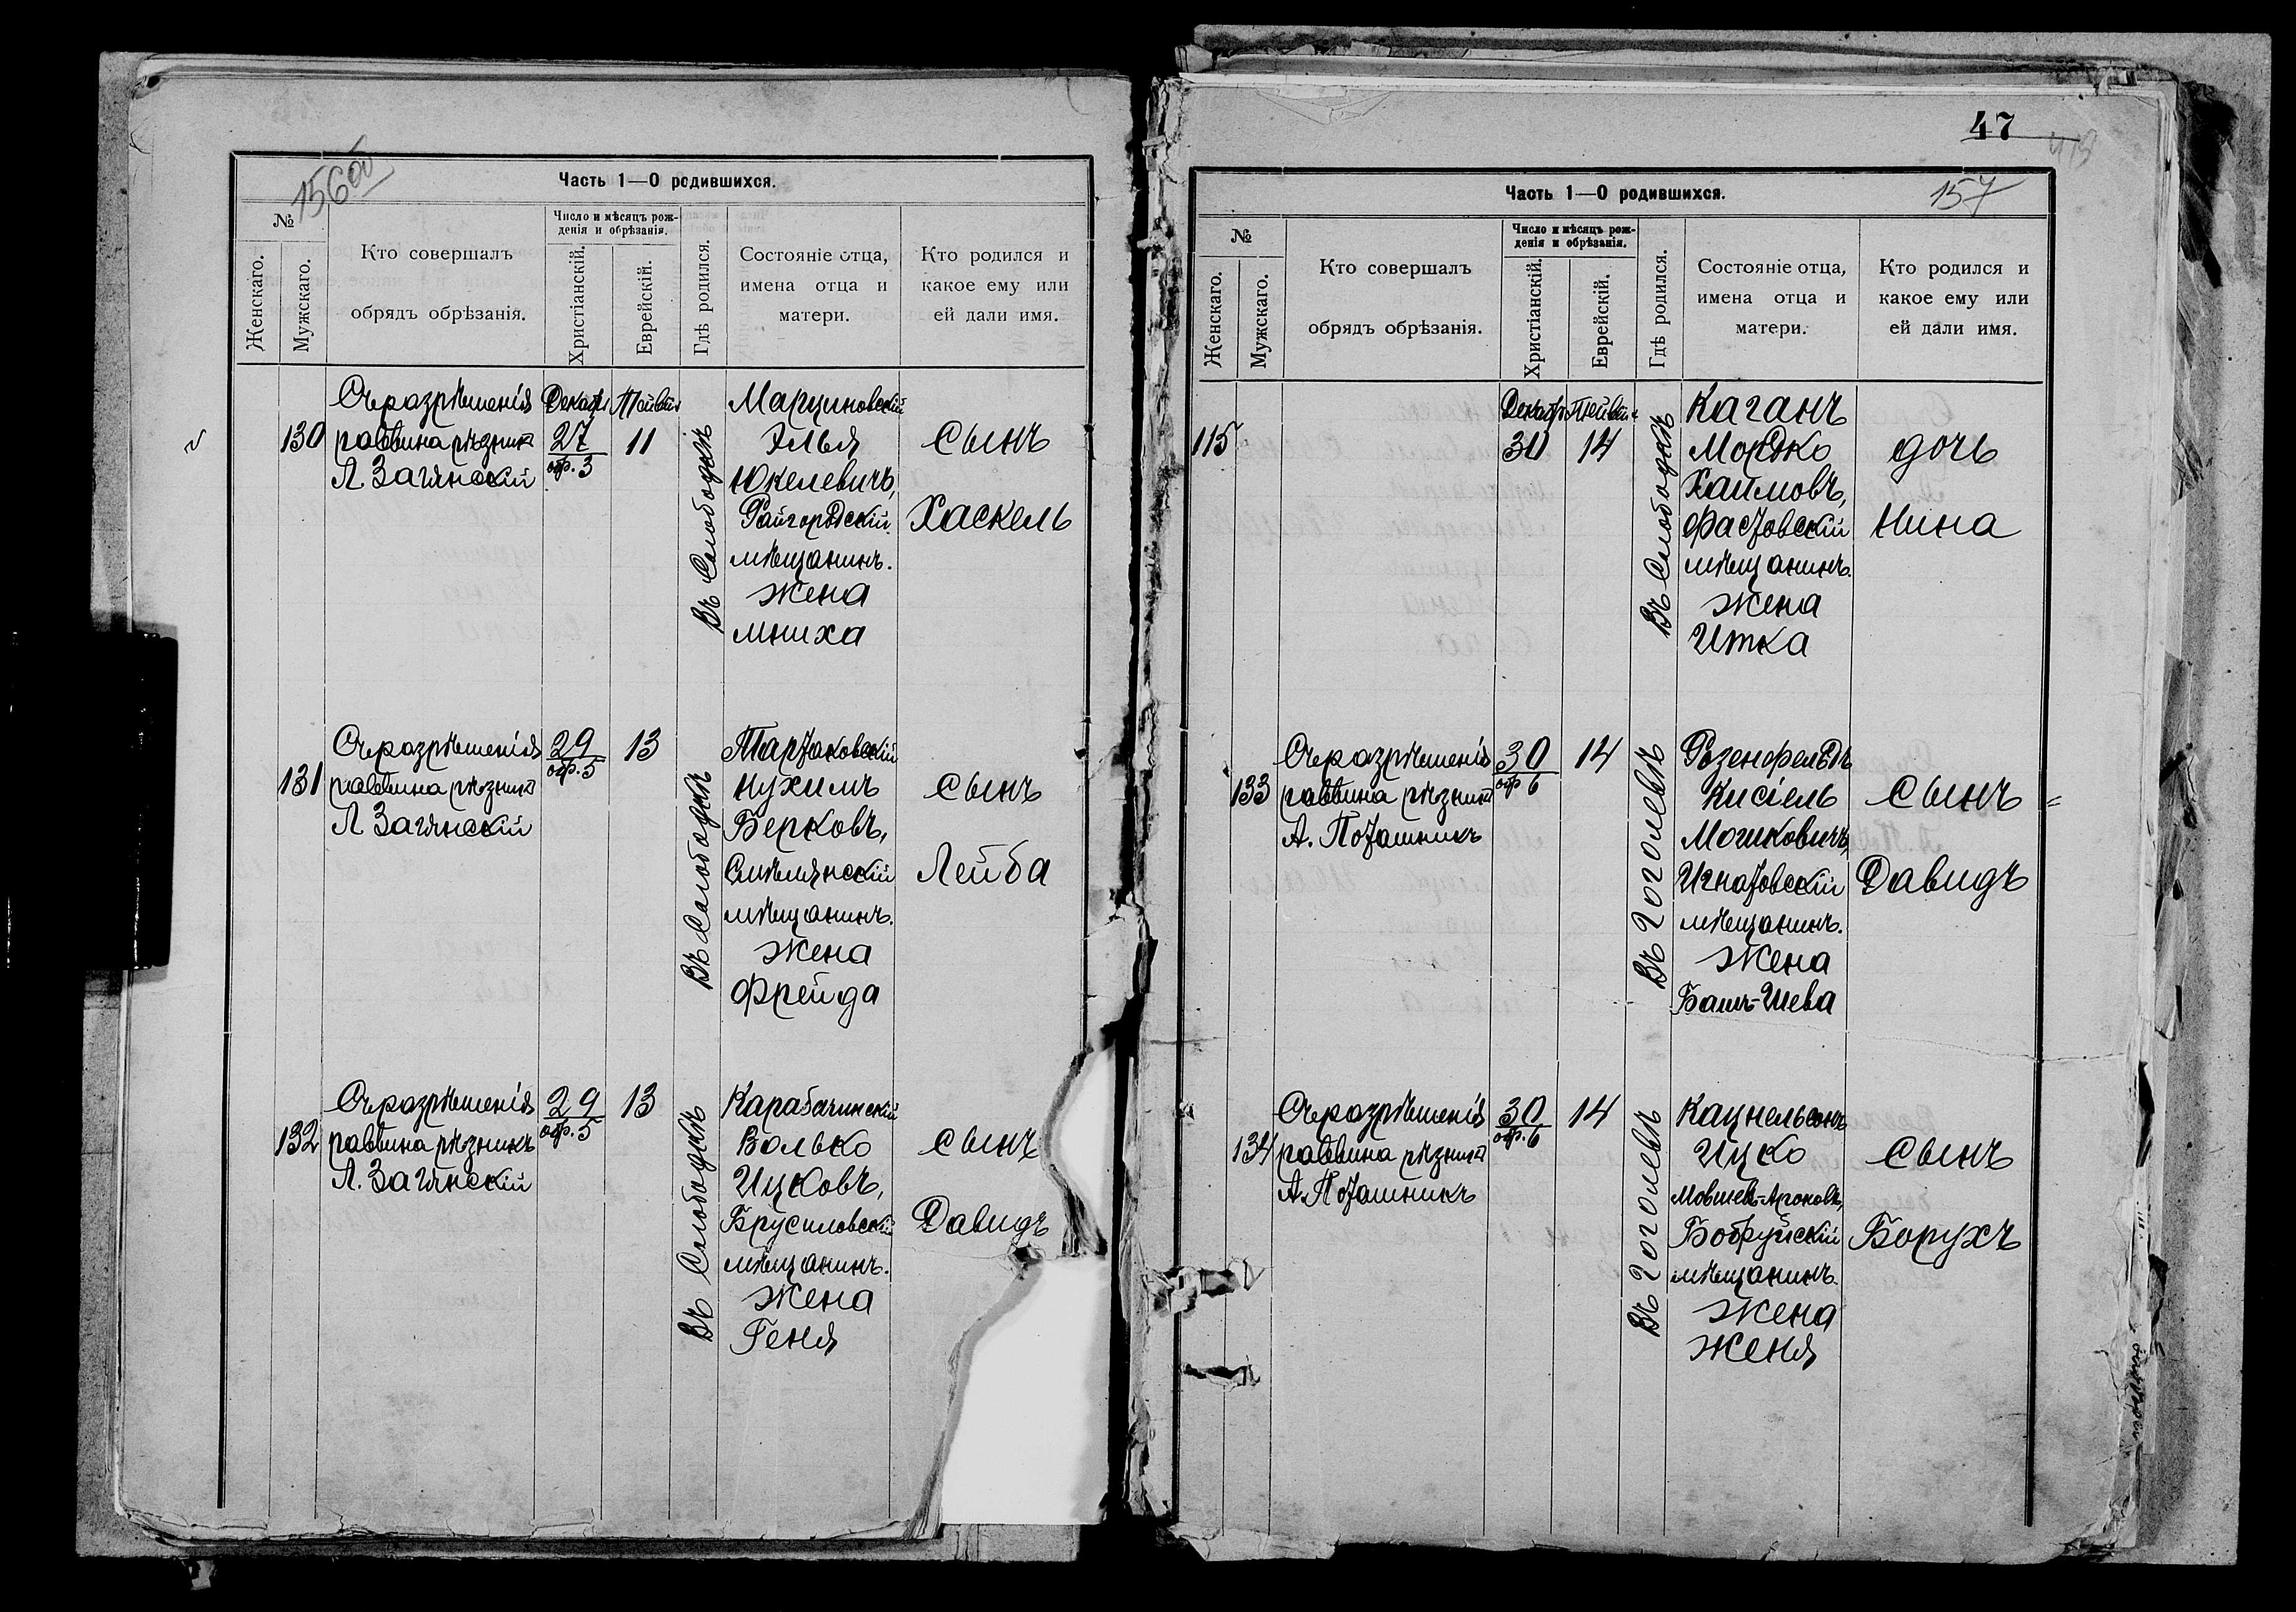 156 об
Часть 1—О родившихся.
№
Женскаго.
Мужскаго.
Кто совершалъ
обрядъ обрѣзанія.
Число и мѣсяцъ рож-
денія и обрѣзанія.
Христіанскій.
Еврейскій.
Гдѣ родился.
Состояніе отца,
имена отца и
матери.
Кто родился и
какое ему или
ей дали имя.
130
Съ разрѣшенія
раввина рѣзникъ
Л. Загянскій
Декабр
27
обр. 3
Тейвеи
11
Въ Слободкѣ
Марциновскій
Элья
Юкелевичъ,
Райгородскій
мѣщанинъ.
жена
Мниха
сынъ
Хаскель
131
Съ разрѣшенія
раввина рѣзникъ
Л Загянскій
29
обр. 5
13
Въ Слободкѣ
Тартаковскій
Нухимъ
Берковъ,
Смѣлянскій
мѣщанинъ.
жена
Фрейда
сынъ
Лейба
132
Съ разрѣшенія
раввина рѣзникъ
Л. Загянскій
29
обр. 5
13
Въ Слободкѣ
Карабачинскій
Волько
Ицковъ,
Брусиловскій
мѣщанинъ.
жена
Геня
сынъ
Давидъ
47
157
Часть 1—О родившихся.
№
Женскаго.
Мужскаго.
Кто совершалъ
обрядъ обрѣзанія.
Число и мѣсяцъ рож-
денія и обрѣзанія.
Христіанскій.
Еврейскій.
Гдѣ родился.
Состояніе отца,
имена отца и
матери.
Кто родился и
какое ему или
ей дали имя.
115
Декабр
30
Тейвеи
14
Въ Слободкѣ
Каганъ
Мордко
Хаимовъ,
Фастовскій
мѣщанинъ.
жена
Итка
дочь
Нина
133
Съ разрѣшенія
раввина рѣзникъ
А. Поташникъ
30
обр 6
14
Въ Гоголевѣ
Розенфельдъ
Кисіель
Мошковичъ,
Игнатовскій
мѣщанинъ.
жена
Башъ-Шева
сынъ
Давидъ
134
Съ разрѣшенія
раввина рѣзникъ
А. Поташникъ
30
обр. 6
14
Въ Гоголевѣ
Кацнельсонъ
Ицко
Мовшевъ-Ароновъ,
Бобруйскій
мѣщанинъ.
жена
Женя
сынъ
Борухъ